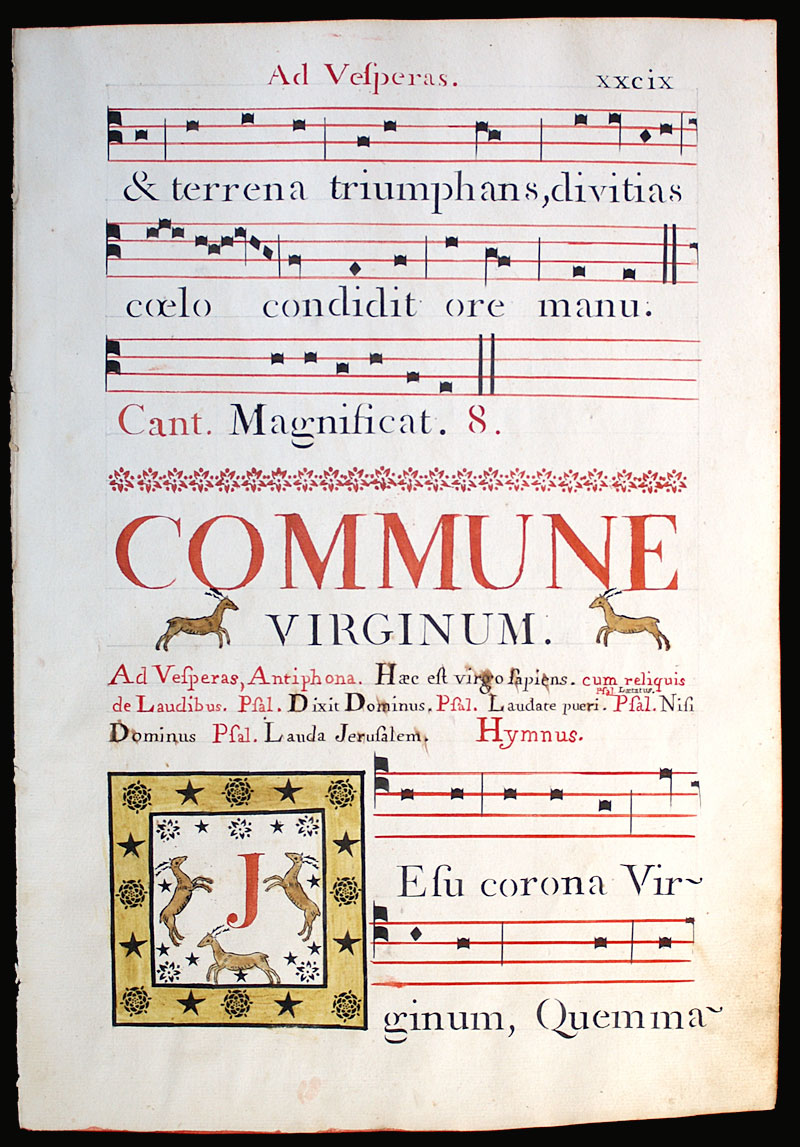 Ad Veſperas. xxcix
& terrena triumphans, divitias
cœlo condidit ore manu.
Cant. Magnificat. 8.
COMMUNE
VIRGINUM.
Ad Veſperas, Antiphona. Hæc eſt virgo ſapiens. cum reliquis
de Laudibus. Pſal. Dixit Dominus. Pſal. Laudate pueri. Pſal. Lætatus. Pſal. Niſi
Dominus Pſal. Lauda Jeruſalem. Hymnus.
JEſu corona Vir~
ginum, Quem ma~